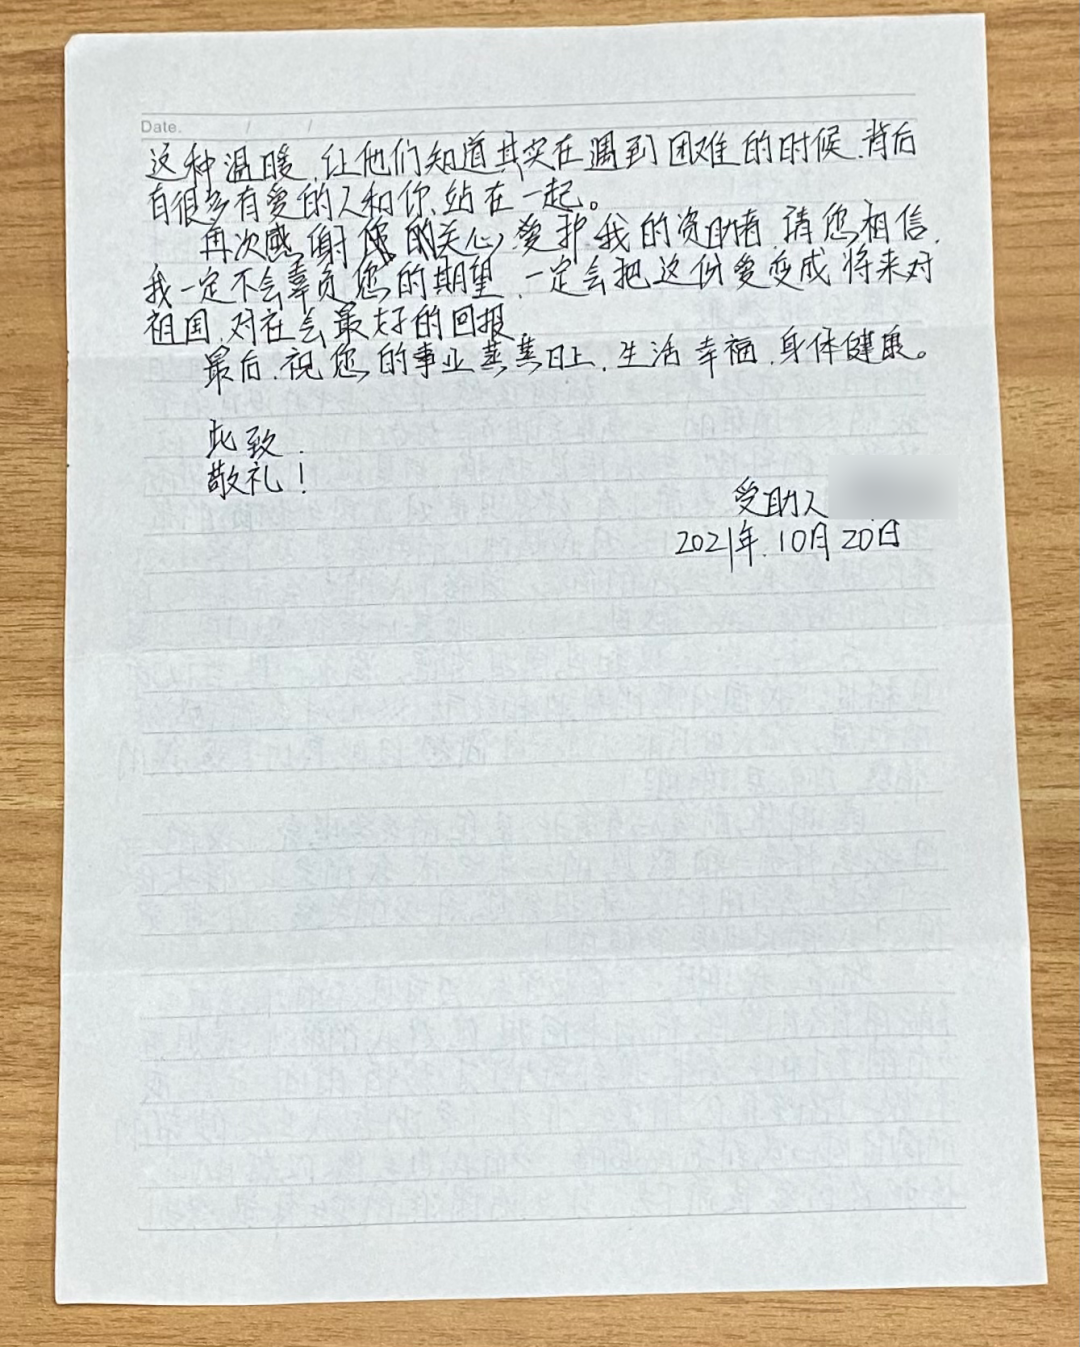 Date. / /
这种温暖,让他们知道其实在遇到困难的时候,背后
有很多有爱的人和你站在一起。
再次感谢您的关心,爱护我的资助者,请您相信,
我一定不会辜负您的期望,一定会把这份爱变成将来对
祖国,对社会最好的回报。
最后,祝您的事业蒸蒸日上,生活幸福,身体健康。
此致.
敬礼!
受助人
2021年.10月20日